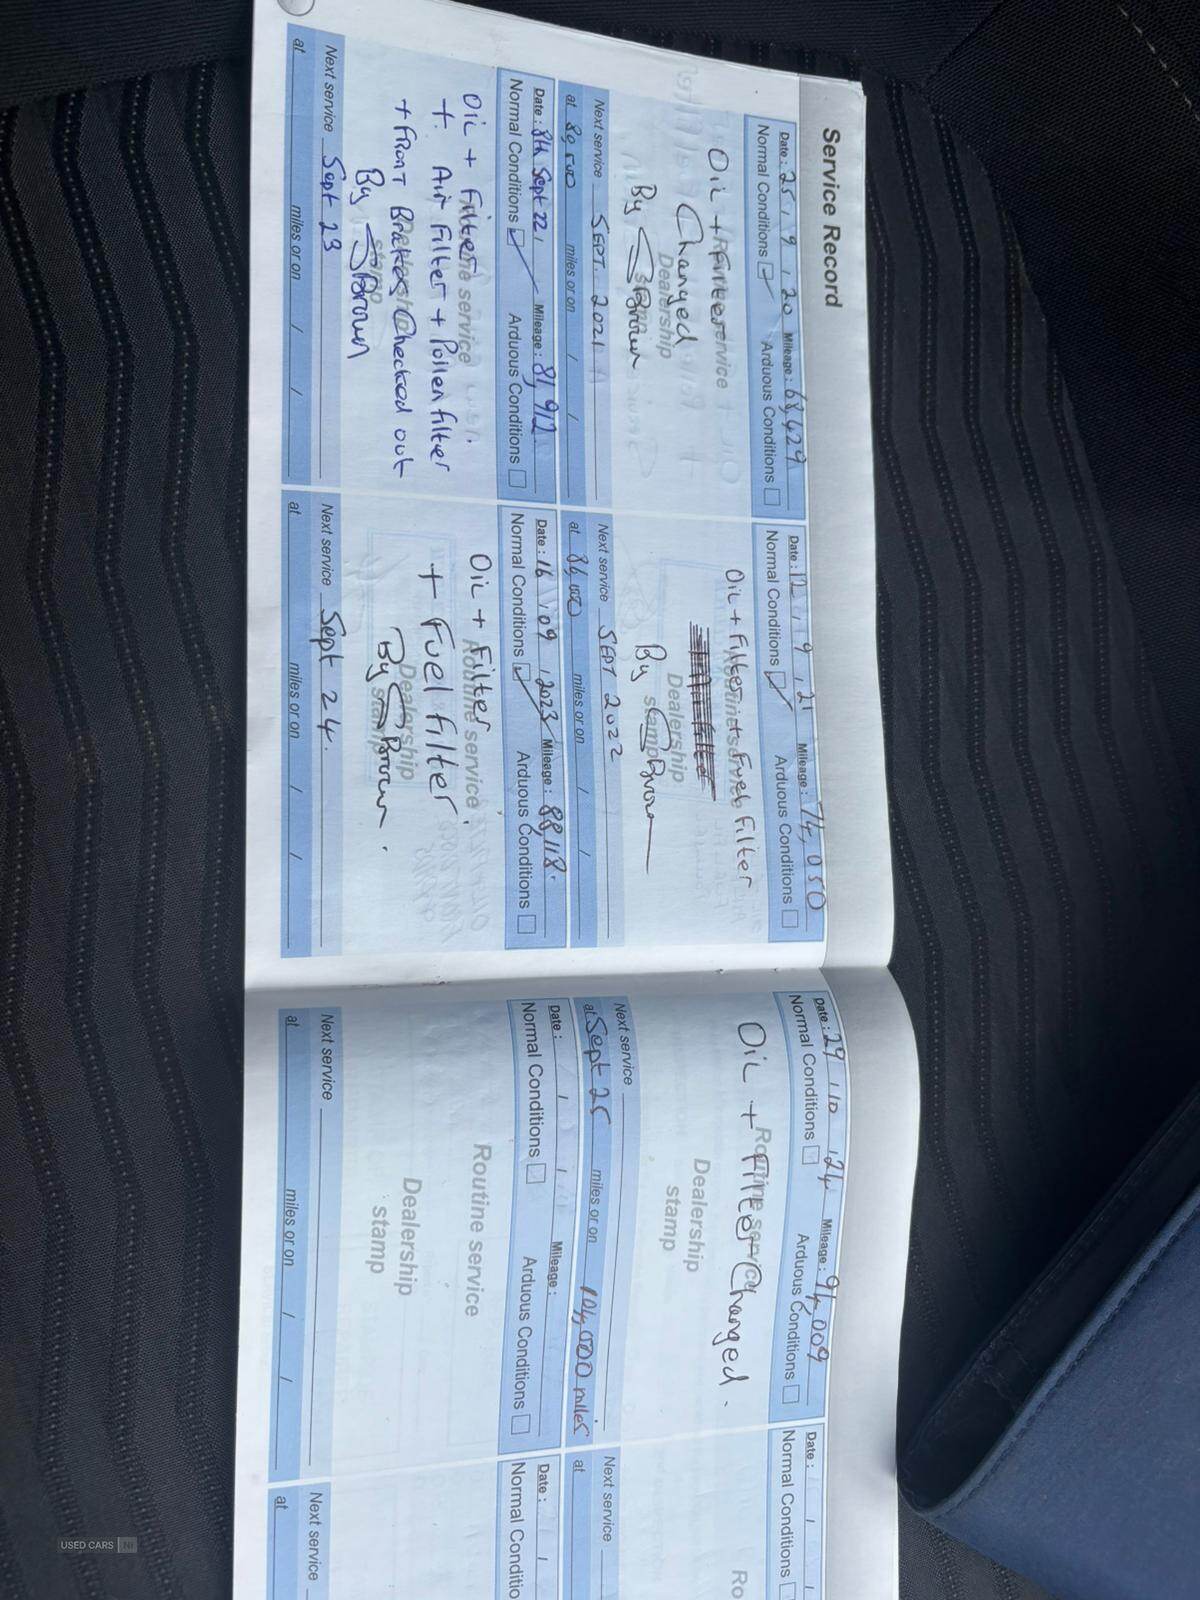 Service Record
Date : 25 / 9 / 20 Mileage : 68,429
Normal Conditions Arduous Conditions
Routine service
Oil + Filter
Changed
Dealership
stamp
By Brown
Next service SEPT. 2021
at 80,500 miles or on / /
Date : 12 / 9 / 21 Mileage : 74,050
Normal Conditions Arduous Conditions
Routine service
Oil + Filter + Fuel Filter
Dealership
stamp
By Brown
Next service SEPT 2022
at 86,000 miles or on / /
Date : 8th Sept 22, Mileage : 81,912
Normal Conditions Arduous Conditions
Routine service
Oil + Filter
+ Air Filter + Pollen filter
+ FRONT Brakes Checked out
Dealership
stamp
By Brown
Next service Sept 23
at miles or on / /
Date : 16 / 09 / 2023 Mileage : 88,118.
Normal Conditions Arduous Conditions
Routine service
Oil + Filter
+ Fuel Filter
Dealership
stamp
By Brown.
Next service Sept 24.
at miles or on / /
Date : 29 / 10 / 24 Mileage : 94,009
Normal Conditions Arduous Conditions
Routine service
Oil + Filter Changed.
Dealership
stamp
Next service
at Sept 25 miles or on 104,000 miles
Date : / / Mileage :
Normal Conditions Arduous Conditions
Routine service
Dealership
stamp
Next service
at miles or on / /
Date : / /
Normal Conditions
Ro
Next service
at
Date : /
Normal Conditio
Next service
at
USED CARS NI